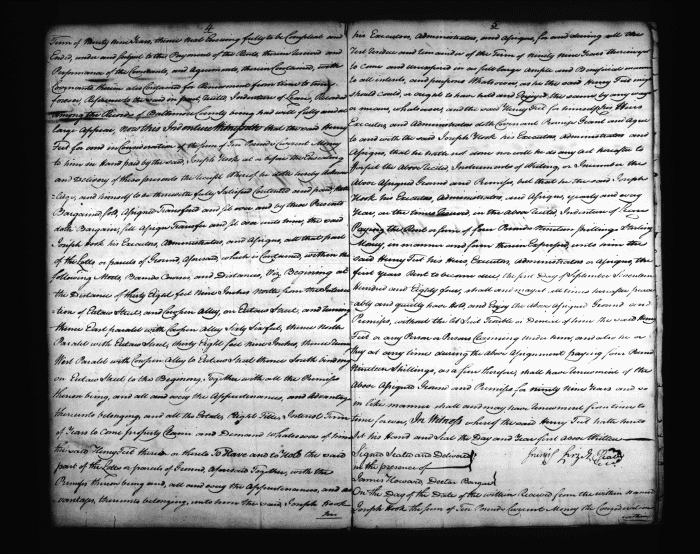 4
Term of Ninety nine Years, thence next Ensuing fully to be Compleat and
Ended, under and subject to the Payment of the Rents, therein reserved and
Performance of the Covenants, and Agreements, therein Contained, with
Covenants therein also Contained for Renewment from time to time
forever, As presents the said in part recited Indenture of Lease, Recorded
Among the Records of Baltimore County being had will fully and at
large Appear, Now this Indenture Witnesseth that the said Henry
Tiel for and in Consideration of the sum of Ten Pounds Current Money
to him in Hand paid by the said Joseph Hook at or before the Ensealing
and Delivery of these presents the Receipt Whereof he doth hereby Acknow
ledge, and himself to be therewith fully Satisfied Contented and paid, hath
Bargained, Sold, Assigned Transferd and set over and by these Presents
doth Bargain, Sell Assign Transfer and set over unto him, the said
Joseph Hook his Executors, Administrators, and Assigns, all that part
of the Lotts or parcels of Ground, Aforesaid, which is Contained, within the
following Meets, Bounds Courses, and Distances, Viz. Beginning at
the Distance of thirty Eight feet Nine Inches North from the Intersec
tion of Eutaw Street, and Cowpen Alley, on Eutaw Street, and running
thence East paralel with Cowpen Alley Sixty Six feet, thence North
Paralel with Eutaw Street, thirty Eight feet Nine Inches, thence
West Paralel with Cowpen Alley to Eutaw Street thence South binding
on Eutaw Street to the Beginning, Together with all the Premises
thereon being, and all and every the Appurtenances, and Advantages
thereunto belonging, and all the Estate, Right Title, Interest Term
of Years to come property Claim and Demand whatsoever of him
the said Henry Tiel therein or thereto To Have and to Hold the said
part of the Lotts or parcels of Ground, Aforesaid Together, with the
Premises thereon being and, all and every the Appurtenances, and ad
vantages, thereunto belonging, unto him the said Joseph Hook
his
5
his Executors, Administrators, and Assigns, for and during all the
Rest Residue and remainder of the Term of Ninety Nine Years therein yet
to come and unexpired in as full large ample and Beneficial manner
to all intents, and purposes Whatsoever, as he the said Henry Tiel might
should or ought to have held and Enjoyed the same by any ways
or means, whatsoever, and the said Henry Tiel for himself his Heirs
Executors, and Administrators doth Covenant Promise Grant, and Agree
to and with the said Joseph Hook his Executors, Administrators and
Assigns, that he hath not done nor will he do any act hereafter to
forfeit the above Recited, Instruments of Writing, or Incumber the
Above Assigned Ground and Premises, but that he the said Joseph
Hook his Executors, Administrators, and Assigns, yearly and every
Year, on the times Reserved, in the above Recited, Indenture of Lease
Paying the Rent or sum of four Pounds Nineteen Shillings Sterling
Money, in manner and form therein Expressed, unto him the
said Henry Tiel his Heirs Executors, Administrators or Assigns, the
first Years Rent to become due, the first Day of September Seventeen
Hundred and Eighty four, shall and may at all times hereafter peace
ably and quietly have hold and Enjoy the above Assigned Ground and
Premises, without the Let Suit Trouble or Denial of him the said Henry
Tiel or any Person or Persons Claiming under him, and also he or
they at any time during the above Assignment paying four Pounds
Nineteen Shillings, as a fine therefore, shall have Renewment of the
Above Assigned Ground and Premises for ninety Nine Years and so
in like manner shall and may have Renewment from time to
time, forever, In Witness whereof the said Henry Tiel hath hereto
Set his Hand and Seal the Day and Year first above Written
Signed Sealed and Delivered
in the presence of
James Howard, Decter Burgar
On the Day of the Date of the within Received from the within named
Joseph Hook the sum of Ten Pounds Current Money the Consideration